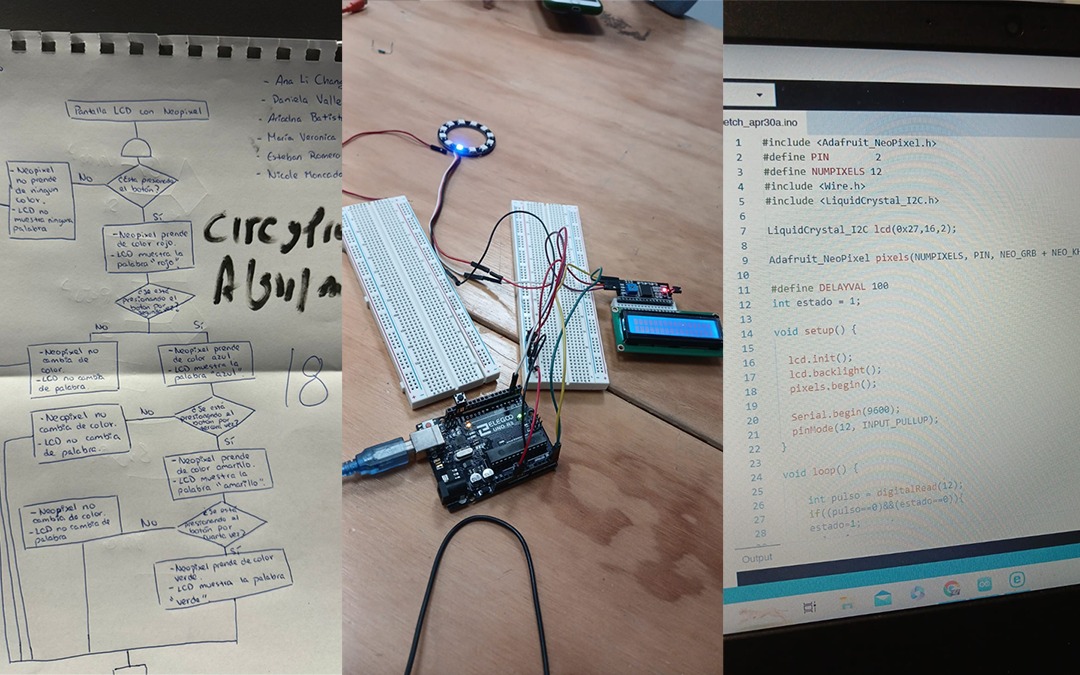 - Ana Li Chang
- Daniela Valle
- Ariadna Batist
- María Veronica
- Esteban Romero
- Nicole Moncada
Pantalla LCD con Neopixel
¿Esta presionado
el botón?
No
- Neopixel
no prende
de ningun
color.
- LCD no
muestra ninguna
palabra
Sí
- Neopixel prende
de color rojo.
- LCD muestra la
palabra "rojo"
¿Se está
presionando el
botón por
No
Sí
- Neopixel no
cambia de
color.
- LCD no cambia
de palabra
- Neopixel prende
de color azul
- LCD muestra la
palabra "azul"
18
¿Se está
presionando el
botón por
tercera vez?
No
- Neopixel no
cambia de color.
- LCD no cambia
de palabra.
Sí
- Neopixel prende
de color amarillo.
- LCD muestra la
palabra "amarillo"
¿Se está
presionando el
botón por
cuarta vez?
No
- Neopixel no
cambia de color.
- LCD no cambia de
palabra
Sí
- Neopixel prende de color
verde.
- LCD muestra la palabra
"verde"
ELEGOO
UNO R3
etch_apr30a.ino
1 #include <Adafruit_NeoPixel.h>
2 #define PIN 2
3 #define NUMPIXELS 12
4 #include <Wire.h>
5 #include <LiquidCrystal_I2C.h>
6
7 LiquidCrystal_I2C lcd(0x27,16,2);
8
9 Adafruit_NeoPixel pixels(NUMPIXELS, PIN, NEO_GRB + NEO_KH
10
11 #define DELAYVAL 100
12 int estado = 1;
13
14 void setup() {
15
16 lcd.init();
17 lcd.backlight();
18 pixels.begin();
19
20 Serial.begin(9600);
21 pinMode(12, INPUT_PULLUP);
22 }
23
24 void loop() {
25
26 int pulso = digitalRead(12);
27 if((pulso==0)&&(estado==0)){
28 estado=1;
Output